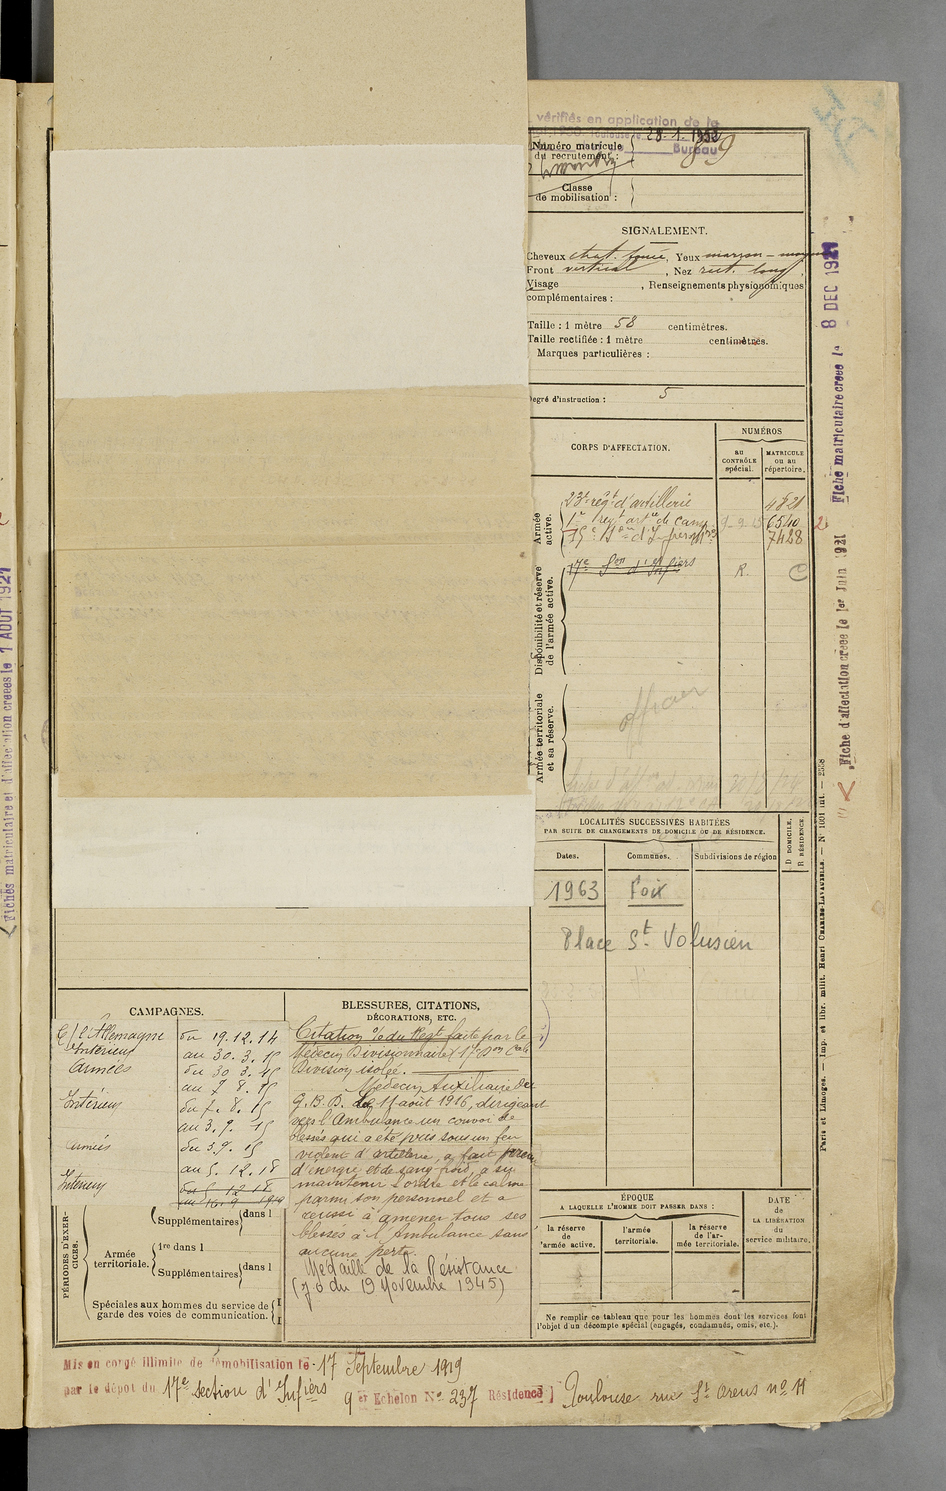 vérifiés en application de la
28.1.1952
Bureau
Numéro matricule
du recrutement :
819
Classe
de mobilisation :
SIGNALEMENT.
Cheveux chat. foncé, Yeux marron-moyen
Front vertical, Nez rect. long,
Visage , Renseignements physionomiques
complémentaires :
Taille : 1 mètre 58 centimètres.
Taille rectifiée : 1 mètre centimètres.
Marques particulières :
Degré d'instruction : 5
CORPS D'AFFECTATION.
NUMÉROS
AU CONTRÔLE spécial.
MATRICULE ou au répertoire.
Armée active.
23e régt d'artillerie 4821
1er régt artie de camp. 9-9-15 6540
15e Son d'Infirmiers 7428
Disponibilité et réserve de l'armée active.
17e Son d'Infiers R. C
Armée territoriale et sa réserve.
officier
LOCALITÉS SUCCESSIVES HABITÉES
PAR SUITE DE CHANGEMENTS DE DOMICILE OU DE RÉSIDENCE.
Dates.
Communes.
Subdivisions de région
D DOMICILE.
R RÉSIDENCE.
1963 Foix
Place St Volusien
CAMPAGNES.
C/ l'Allemagne du 19.12.14
Intérieur au 30.3.15
Armées du 30 3.15
au 7.8.15
Intérieur du 7.8.15
au 3.9.15
Armées du 3.9.15
au 5.12.18
Intérieur du 5 12 18
au 16.9 1919
BLESSURES, CITATIONS,
DÉCORATIONS, ETC.
Citation % du Régt faite par le
Médecin Divisionnaire (17e Don Cale
Division isolée.
Médecin Auxiliaire du
G.B.D. le 11 août 1916, dirigeant
vers l'Ambulance un convoi de
blessés qui a été pris sous un feu
violent d'artillerie, a fait preuve
d'énergie et de sang froid, a su
maintenir l'ordre et le calme
parmi son personnel et a
réussi à amener tous ses
blessés à l'Ambulance sans
aucune perte.
Médaille de la Résistance
(J.O du 19 Novembre 1945)
PÉRIODES D'EXERCICES.
Supplémentaires dans l
Armée
territoriale.
1re dans l
Supplémentaires dans l
Spéciales aux hommes du service de
garde des voies de communication.
ÉPOQUE
A LAQUELLE L'HOMME DOIT PASSER DANS :
la réserve
de
l'armée active.
l'armée
territoriale.
la réserve
de l'armée territoriale.
DATE
de
LA LIBÉRATION
du
service militaire.
Ne remplir ce tableau que pour les hommes dont les services font
l'objet d'un décompte spécial (engagés, condamnés, omis, etc.).
Mis en congé illimité de démobilisation le 17 Septembre 1919
par le dépôt du 17e section d'Infiers 9e Echelon No 237 Résidence Toulouse rue St Orens no 11
Fiche matriculaire créée le 8 DEC 1921
Fiche d'affectation créée le 1er Juin 1921
Paris et Limoges. — Imp. et libr. milit. Henri CHARLES-LAVAUZELLE.
Fiches matriculaire et d'affectation créées le 1 AOUT 1921